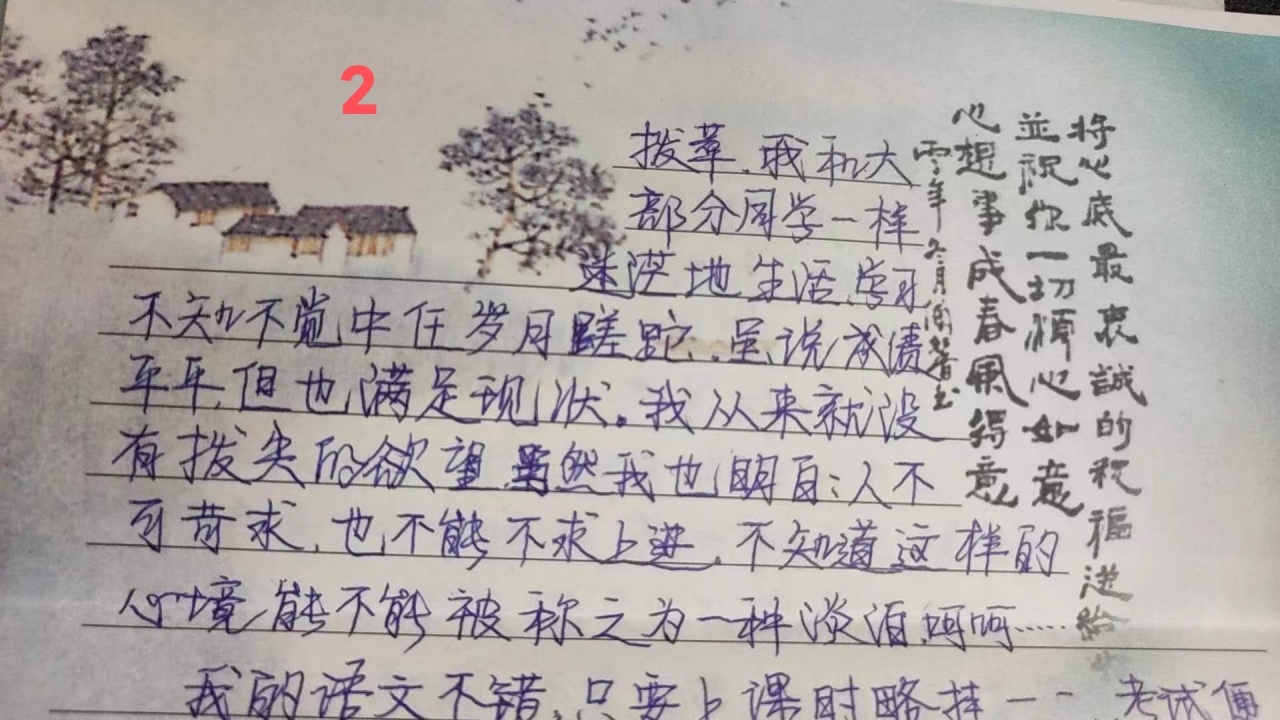 2
拨萃,我和大
部分同学一样
迷茫地生活,学习
不知不觉中任岁月蹉跎,虽说成绩
平平,但也满足现状。我从来就没
有拔尖的欲望,虽然我也明白:人不
可苛求,也不能不求上进,不知道这样的
心境能不能被称之为一种淡泊,呵呵……
我的语文不错,只要上课时略
将心底最衷誠的祝福送給
並祝你一切順心如意
心想事成春風得意
零年冬月